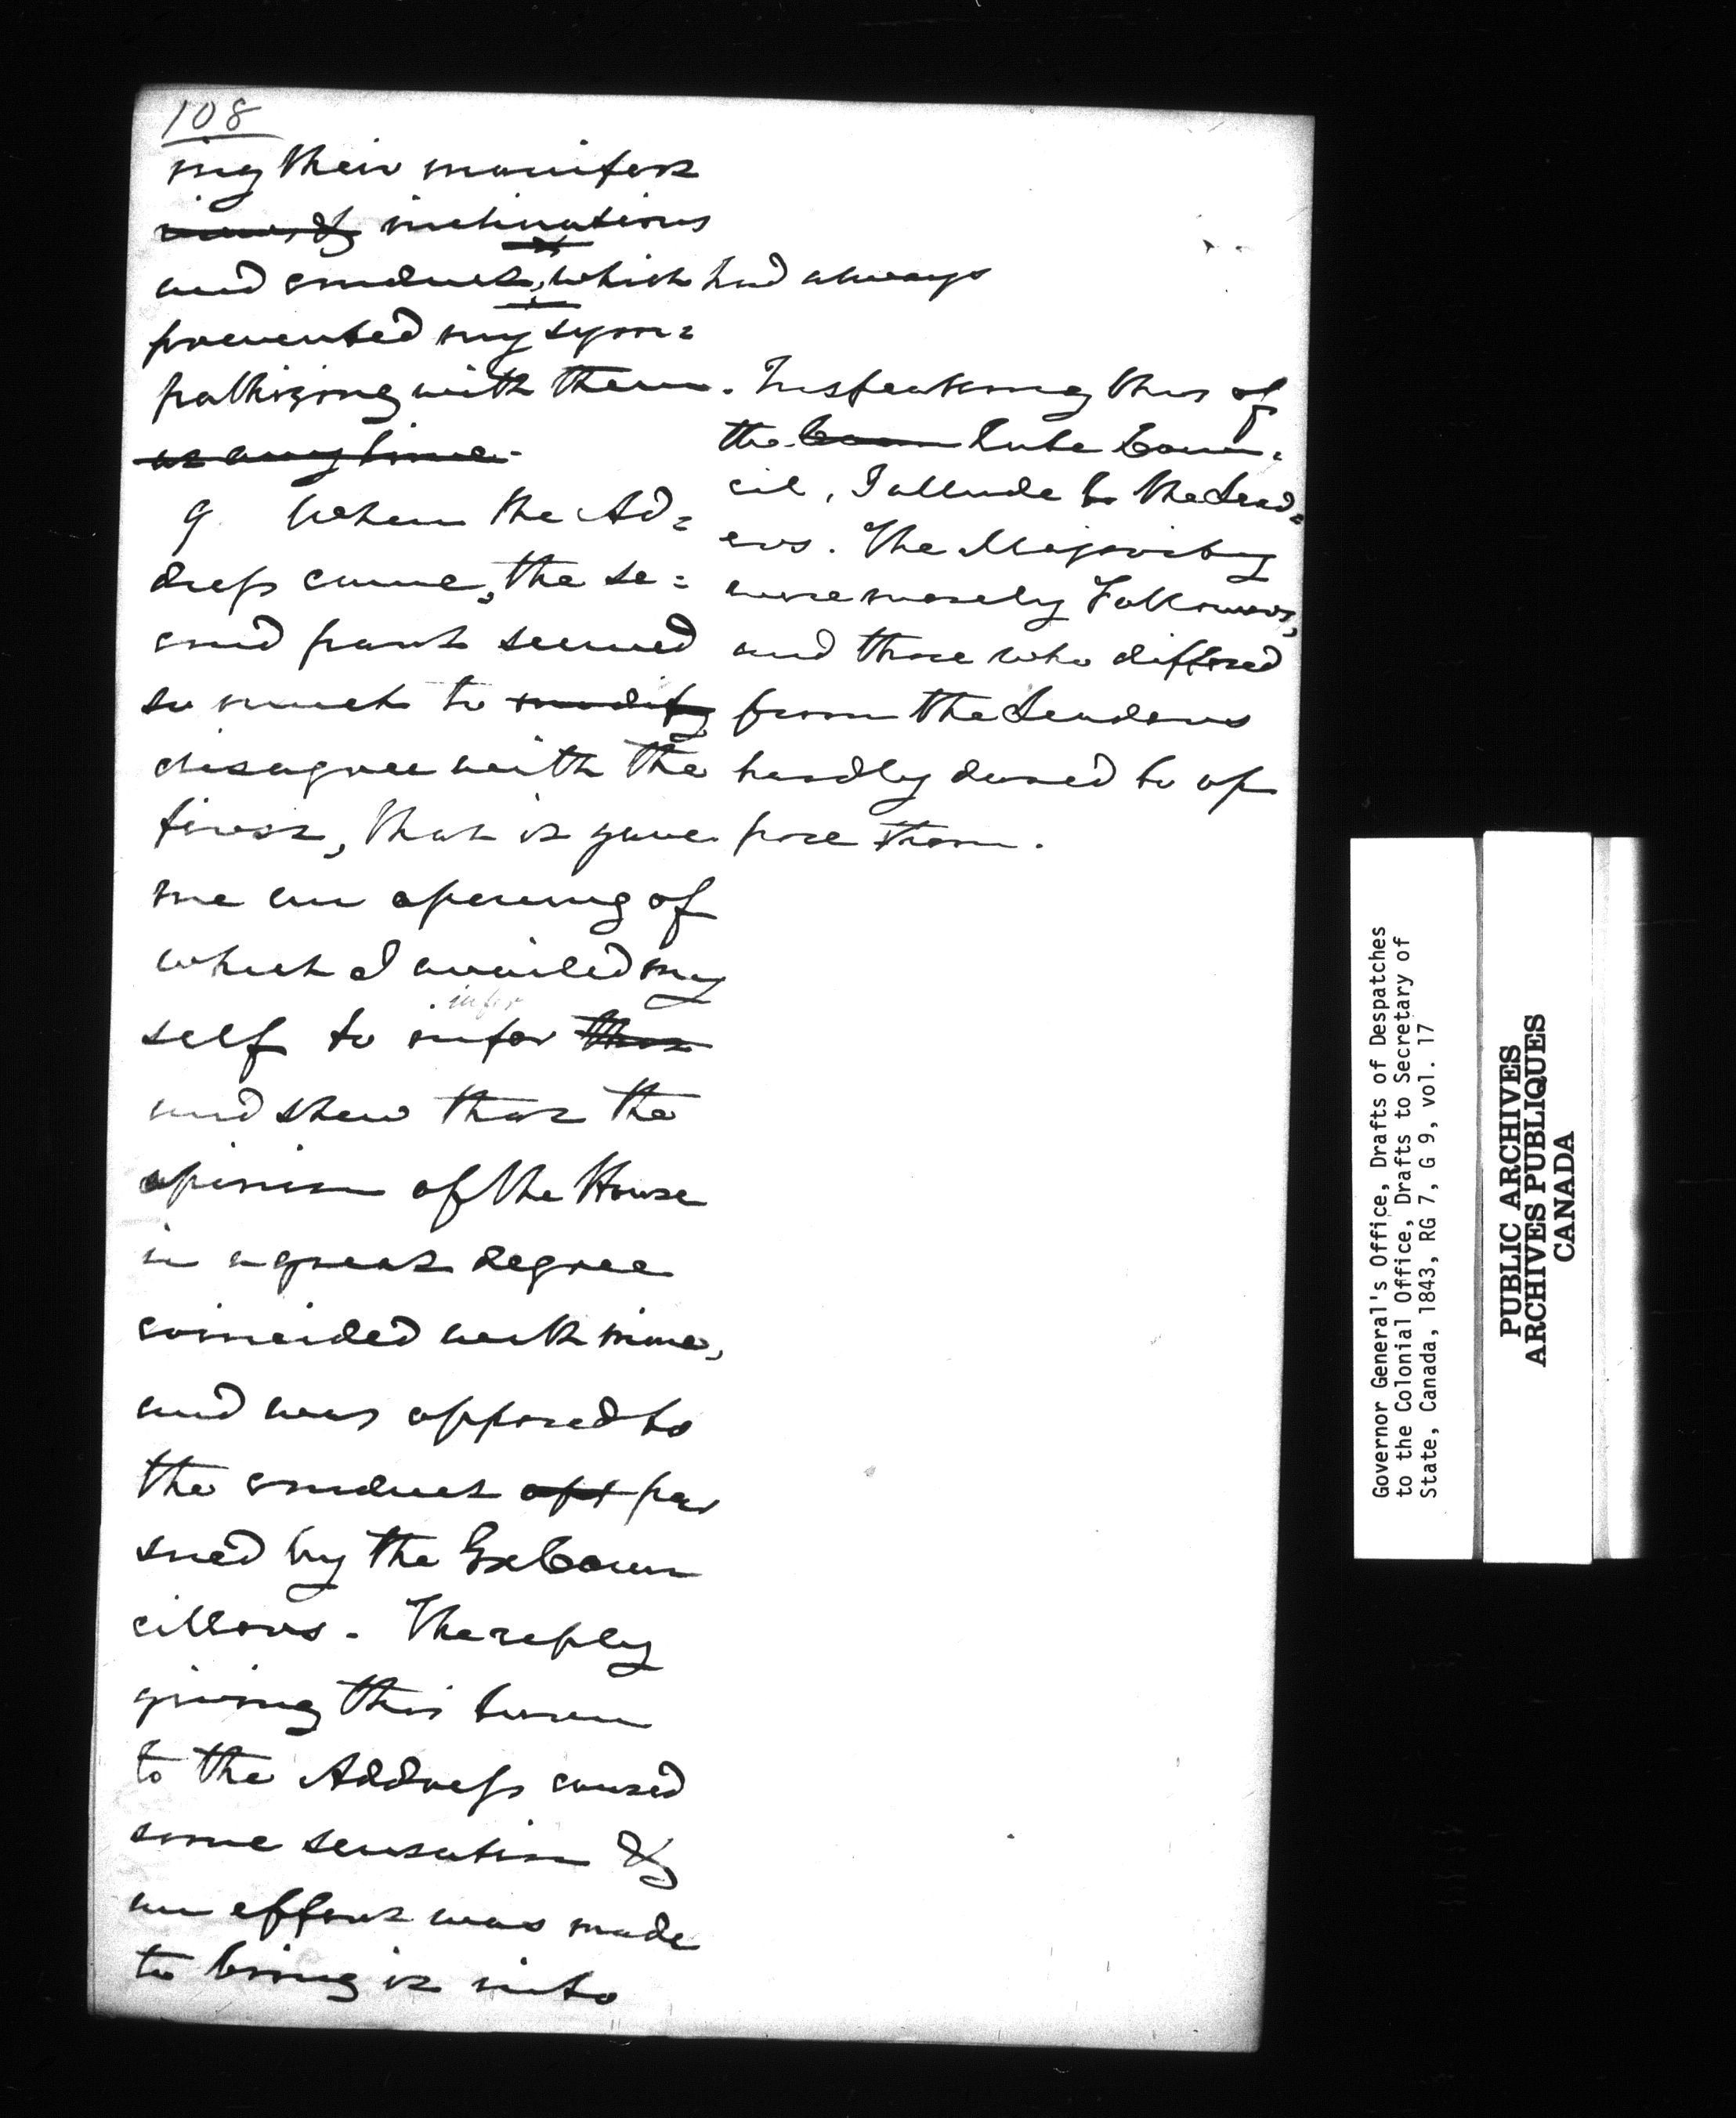 108
ing their manifest
views & inclinations
and conduct, which had always
prevented my sym=
pathizing with them. In speaking thus of
the Coun late Coun=
cil, I allude to the Lead=
ers. The Majority
were merely Followers,
and those who differed
from the Leaders
hardly dared to op
pose them.
at any time.
9. When the Ad=
dress came, the se=
cond part seemed
so much to modify
disagree with the
first, that it gave
me an opening of
which I availed my
self to infer that
infer
and shew that the
opinion of the House
in a great degree
coincided with mine,
and was opposed to
the conduct of t pur
sued by the Ex Coun
cillors. The reply
giving this turn
to the Address caused
some sensation &
an effort was made
to bring it into
Governor General's Office, Drafts of Despatches
to the Colonial Office, Drafts to Secretary of
State, Canada, 1843, RG 7, G 9, vol. 17
PUBLIC ARCHIVES
ARCHIVES PUBLIQUES
CANADA